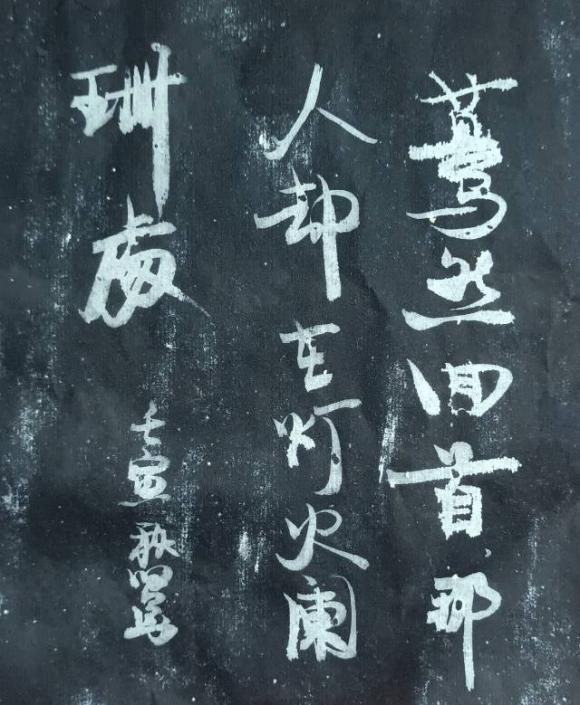 蓦然回首那
人却在灯火阑
珊處
壬寅秋写